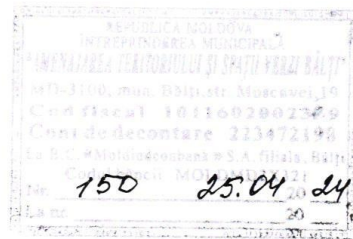 REPUBLICA MOLDOVA
ÎNTREPRINDEREA MUNICIPALĂ
"AMENAJAREA TERITORIULUI ȘI SPAȚII VERZI BĂLȚI"
MD-3100, mun. Bălți, str. Moscovei, 19
Cod fiscal
Cont de decontare 223472198
La B.C. "Moldindconbank" S.A. filiala Bălți
Codul băncii MOLDMD2X321
Nr. 150 25.04 20 24
La nr. 20